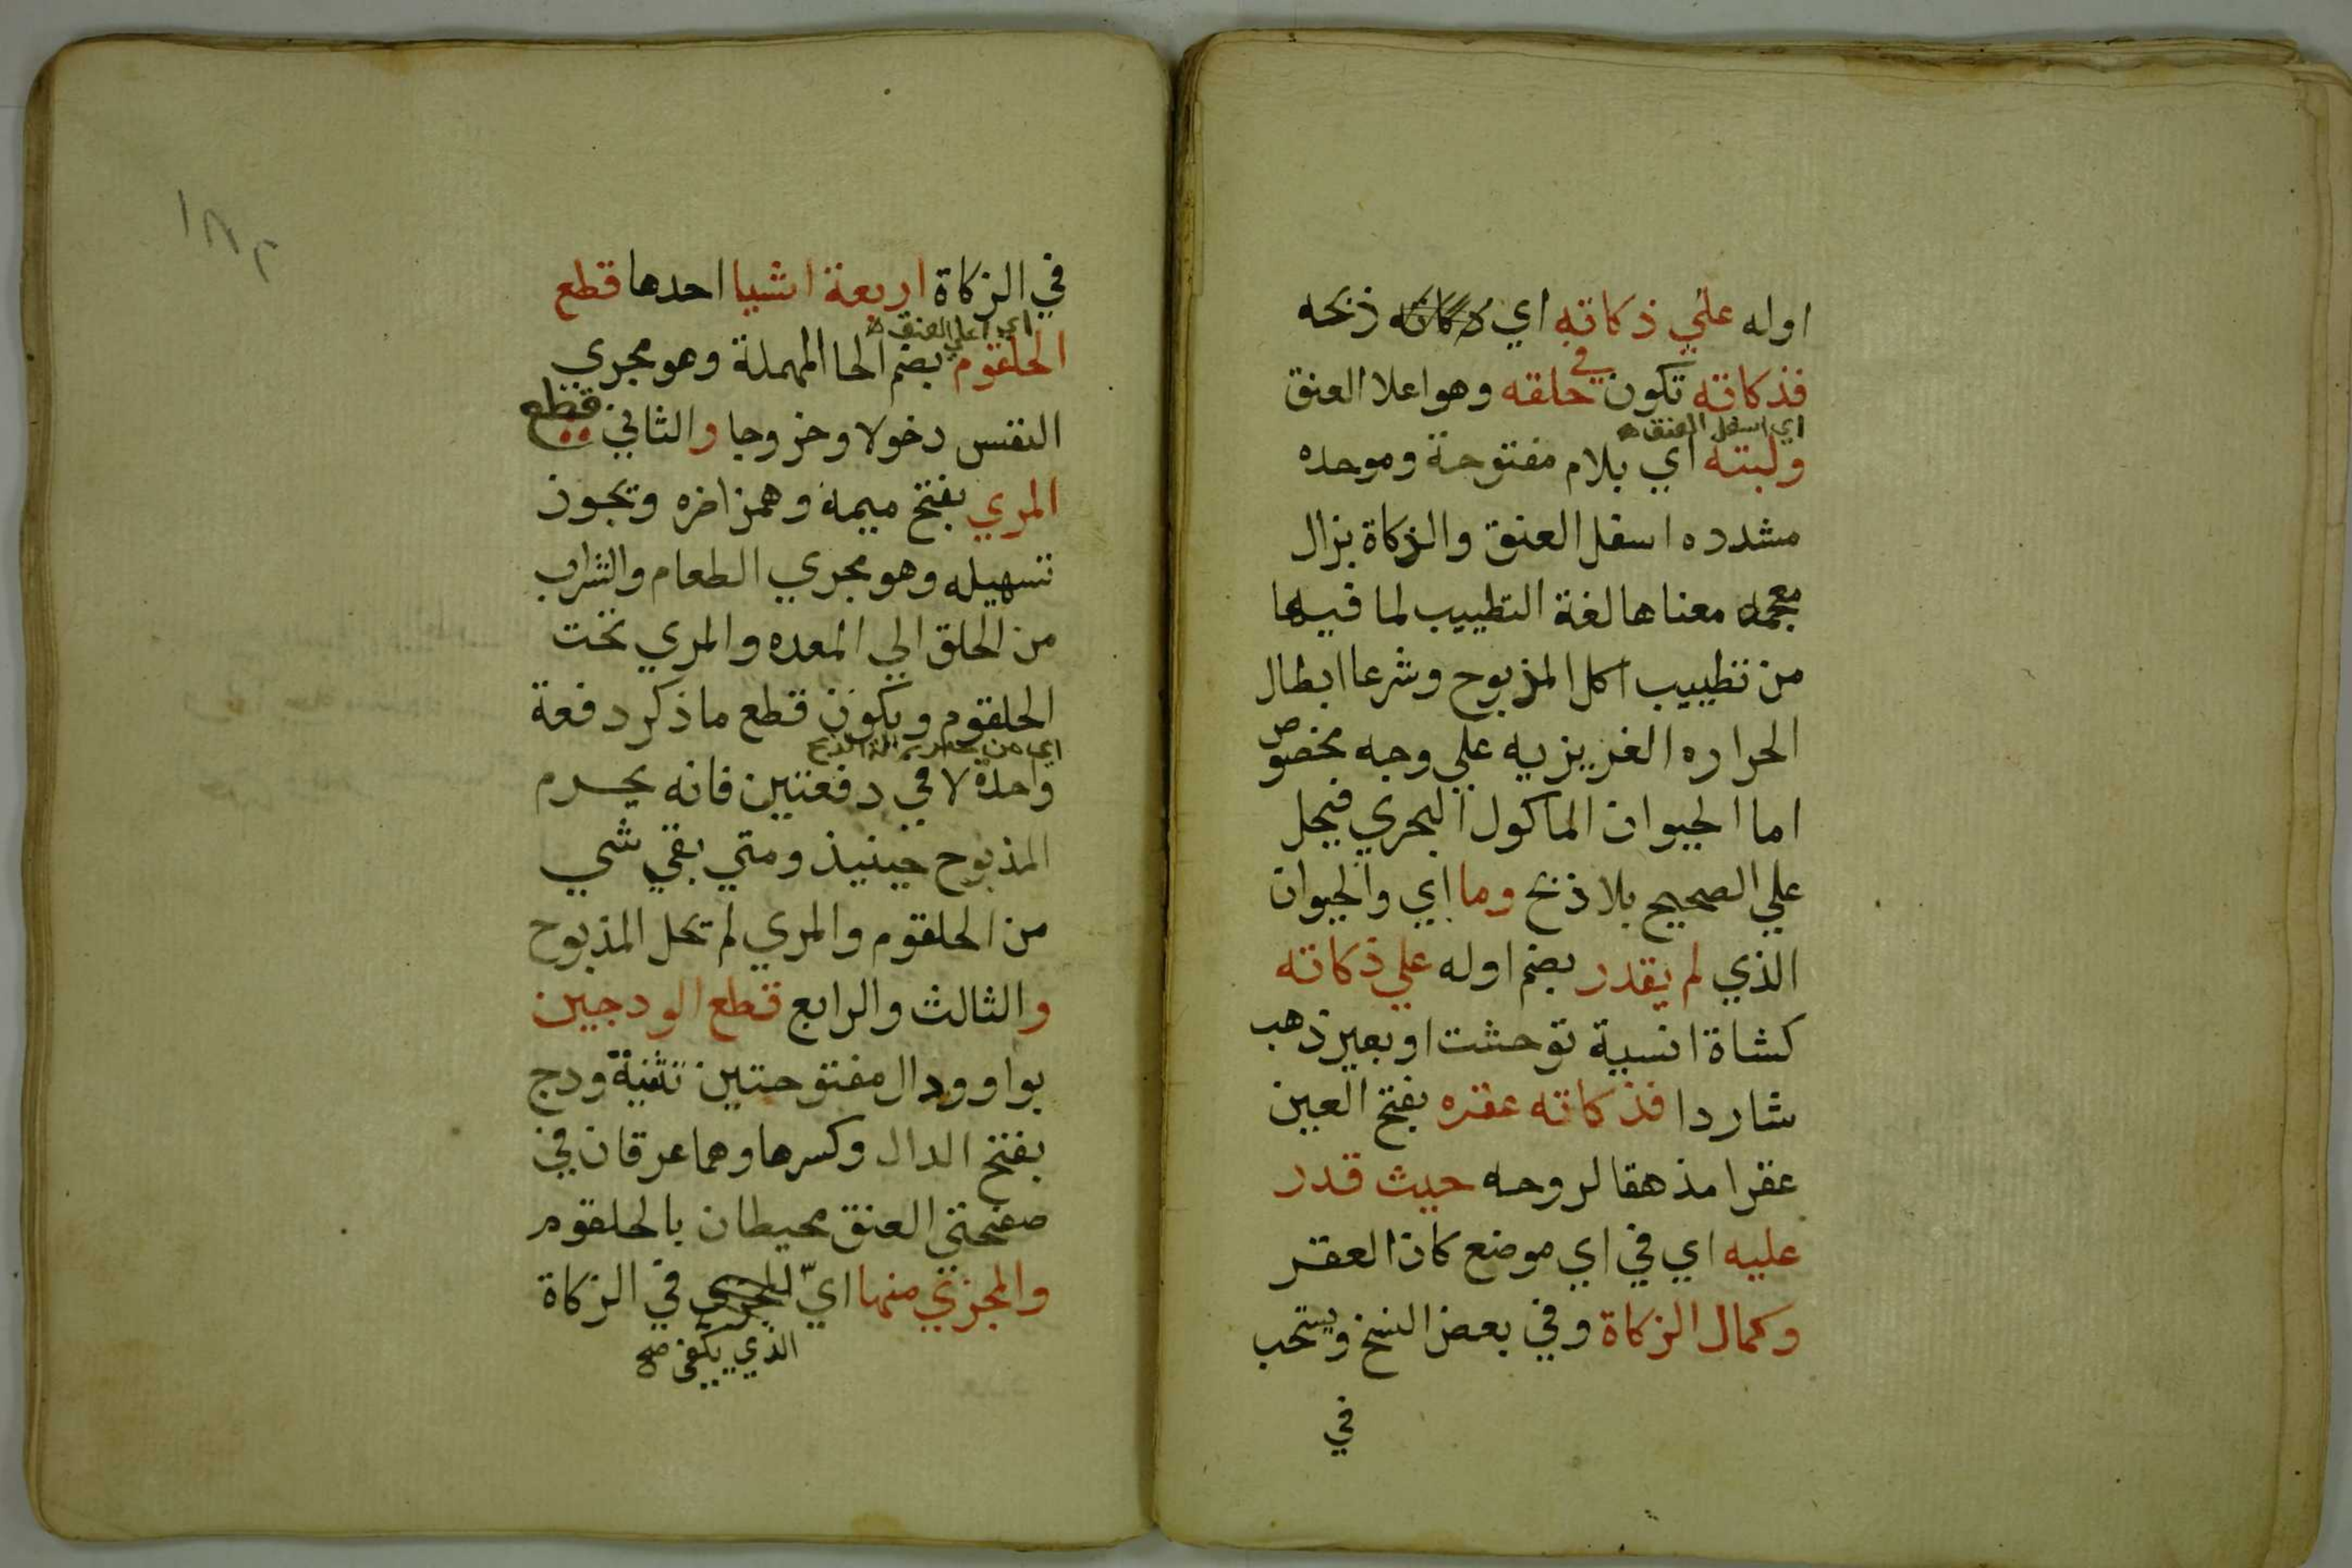 اوله علي ذكاته اي ذكاته ذبحه
فذكاته تكون في حلقه وهو اعلا العنق
اي اسفل العنق
ولبته اي بلام مفتوحة وموحده
مشدده اسفل العنق والزكاة بزال
معجمه معناها لغة التطييب لما فيها
من تطييب اكل المذبوح وشرعا ابطال
الحراره الغريزيه علي وجه مخصوص
اما الحيوان الماكول البحري فيحل
علي الصحيح بلا ذبح وما اي والحيوان
الذي لم يقدر بضم اوله علي ذكاته
كشاة انسية توحشت او بعير ذهب
شاردا فذكاته عقره بفتح العين
عقرا مذهقا لروحه حيث قدر
عليه اي في اي موضع كان العقر
وكمال الزكاة وفي بعض النسخ ويستحب
في
١٨٢
في الزكاة اربعة اشيا احدها قطع
اي اعلي العنق
الحلقوم بضم الحا المهملة وهو مجري
النفس دخولا وخروجا والثاني قطع
المري بفتح ميمه وهمز اخره ويجوز
تسهيله وهو مجري الطعام والشراب
من الحلق الي المعده والمري تحت
الحلقوم ويكون قطع ما ذكر دفعة
اي من الة الذبح
واحدة لا في دفعتين فانه يحرم
المذبوح حينيذ ومتي بقي شي
من الحلقوم والمري لم تحل المذبوح
والثالث والرابع قطع الودجين
بواو ودال مفتوحتين تثنية ودج
بفتح الدال وكسرها وهما عرقان في
صفحتي العنق محيطان بالحلقوم
والمجزي منها اي المجزي في الزكاة
الذي يكفي صح